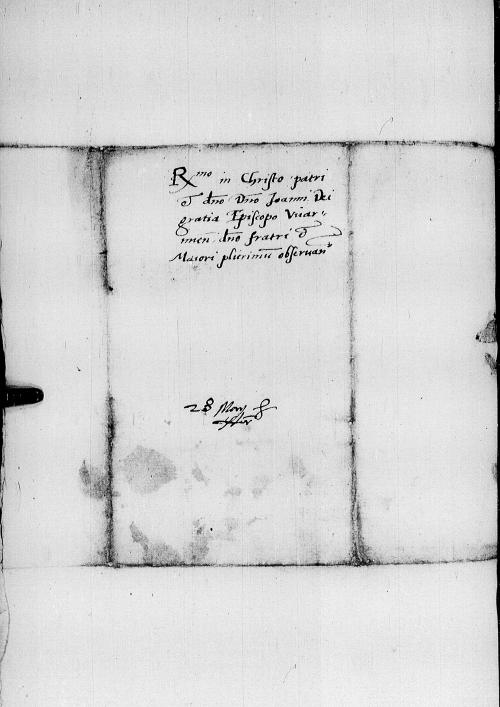 R^mo in Christo patri
et dno Dno Joanni Dei
gratia Episcopo Vuar-
mien dno fratri et
Maiori plurimu observan^o
28 Maij